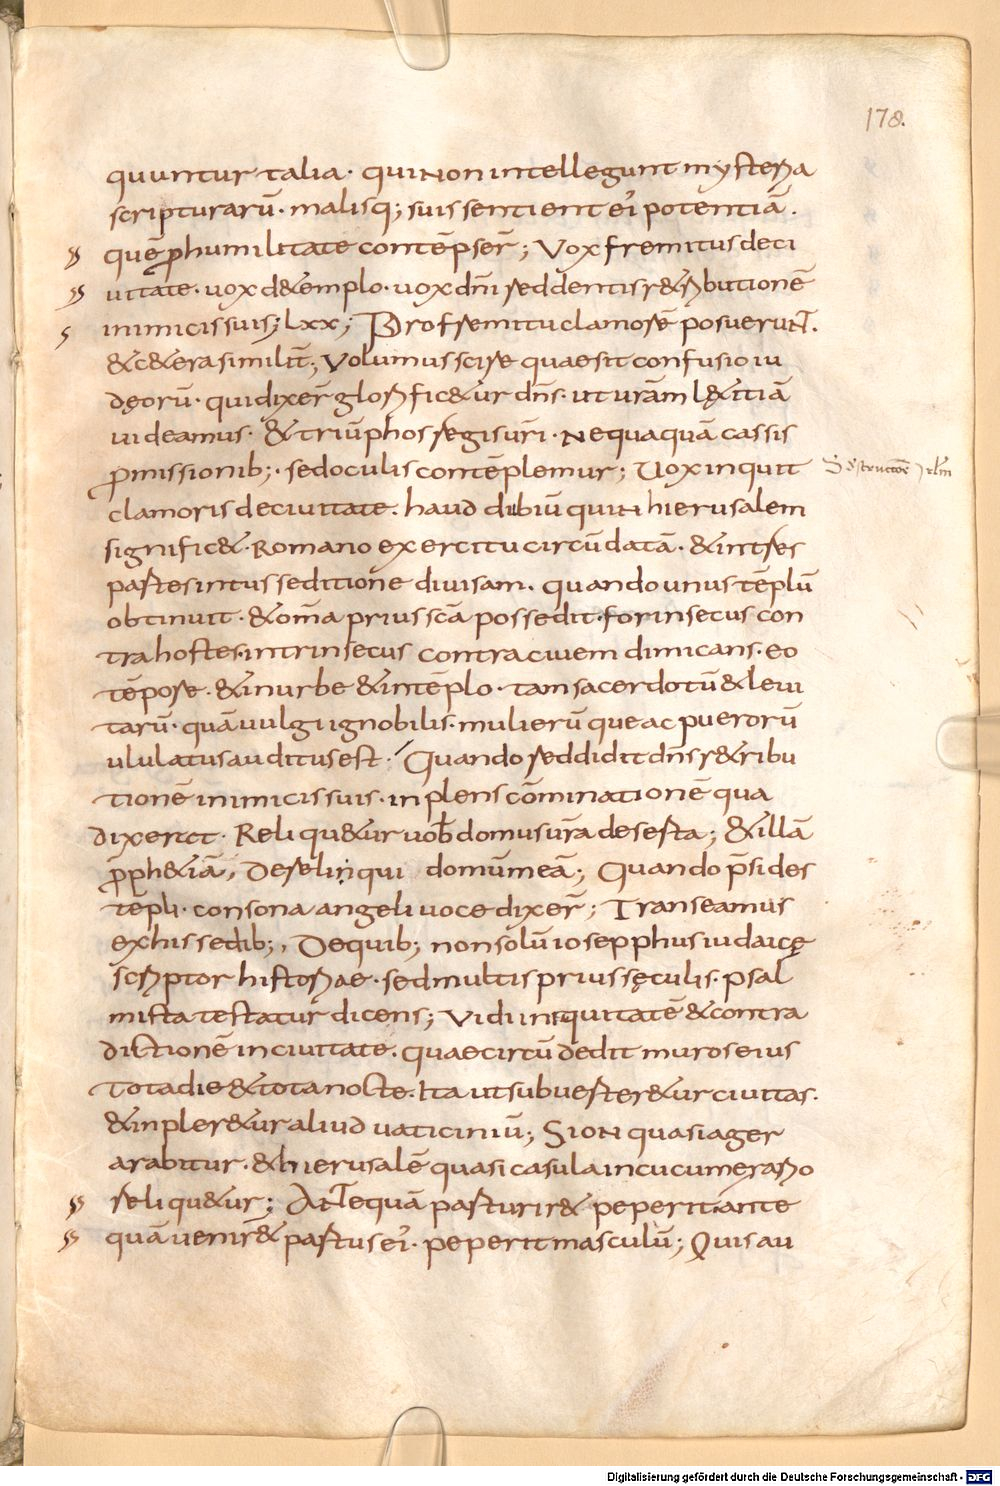 178.
quuntur talia· qui non intellegunt mysteria
scripturarū· malisq; suis sentient ei' potentiā·
quē p̄ humilitate contēpser̄; Vox fremitus de ci
uitate· uox de templo· uox dn̄i reddentis retributionē
inimicis suis; lxx; Pro fremitu clamorē posuerunt·
& cetera similit̄; Volumus scire quae sit confusio iu
dęorū· qui dixer̄ glorific&ur dn̄s· ut ur̄am lętitiā
uideamus· & triūphos regis ur̄i· Nequaquā cassis
p̄missionib;· sed oculis contēplemur; Uox inquit
De structione ierlm̄
clamoris de ciuitate· haud dubiū quin hierusalem
signific&· Romano exercitu circūdatā· & in tres
partes intus seditione diuisam· quando unus tēplū
obtinuit· & om̄a prius sc̄a possedit· forinsecus con
tra hostes· intrinsecus contra ciuem dimicans· eo
tēpore· & in urbe & in tēplo· tam sacerdotū & leui
tarū· quā uulgi ignobilis· mulierū que ac puerorū
ululatus auditus est· Quando reddidit dn̄s r&ribu
tionē inimicis suis· inplens cōminationē qua
dixerat· Reliqu&ur uob̄ domus ur̄a deserta; & illā
p̄ph&iā, Derelinqui domū meā; Quando p̄sides
tēpli· consona angeli uoce dixer̄; Transeamus
ex his sedib;, De quib; non solū iosepphus iudaicę
scriptor historiae· sed multis prius sęculis· psal
mista testatur dicens; Vidi iniquitatē & contra
dictionē in ciuitate· quae circūdedit muros eius
tota die & tota nocte· Ita ut subuerter&ur ciuitas·
& inpler&ur aliud uaticiniū; Sion quasi ager
arabitur· & hierusalē quasi casula in cucumęrario
reliqu&ur; Antequā parturir& peperit· ante
quā ueniret partus ei'· peperit masculū; Quis au
Digitalisierung gefördert durch die Deutsche Forschungsgemeinschaft - DFG